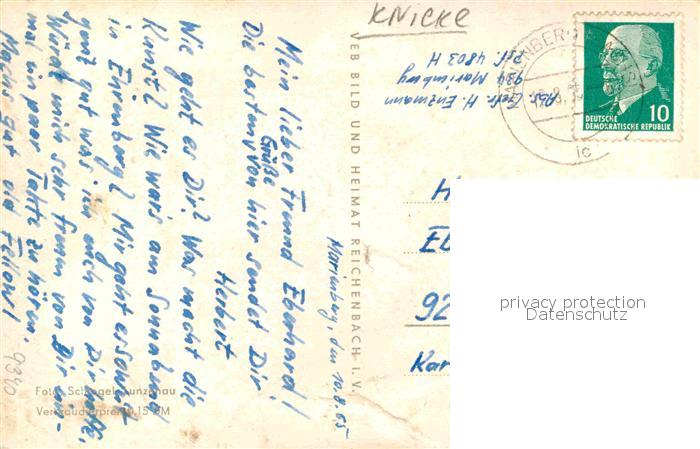 KNICKE
Marienberg, den 10.8.65
Mein lieber Freund Eberhard!
Die besten Grüße von hier sendet Dir
Herbert
Wie geht es Dir? Was macht die
Kunst? Wie war's am Sonnabend
in Ehrenberg? Mir geht es sonst
ganz gut was ich auch von Dir hoffe.
Würde mich sehr freuen von Dir ein-
mal ein paar Takte zu hören.
Machs gut old Fellow!
9340
Foto: Schlegel,
Verbraucherpreis 0,15 DM
VEB BILD UND HEIMAT REICHENBACH I. V.
Abs. Gefr. H. Enzmann
934 Marienberg
P.sf. 4803 H
MARIENBERG
ic
10
DEUTSCHE
DEMOKRATISCHE REPUBLIK
H
Eb
92
Kar
privacy protection
Datenschutz